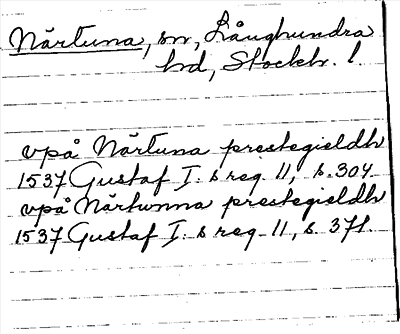 Närtuna, sn, Långhundra
hd, Stockh. l.
vpå Närtuna prestegieldh
1537 Gustaf I:s reg. 11, s. 304.
vpå Närtunna prestegieldh
1537 Gustaf I:s reg. 11, s. 371.